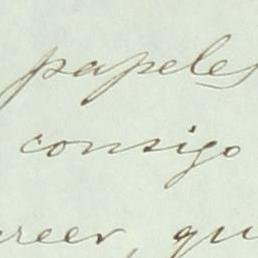 papeles
consigo
reer, qu